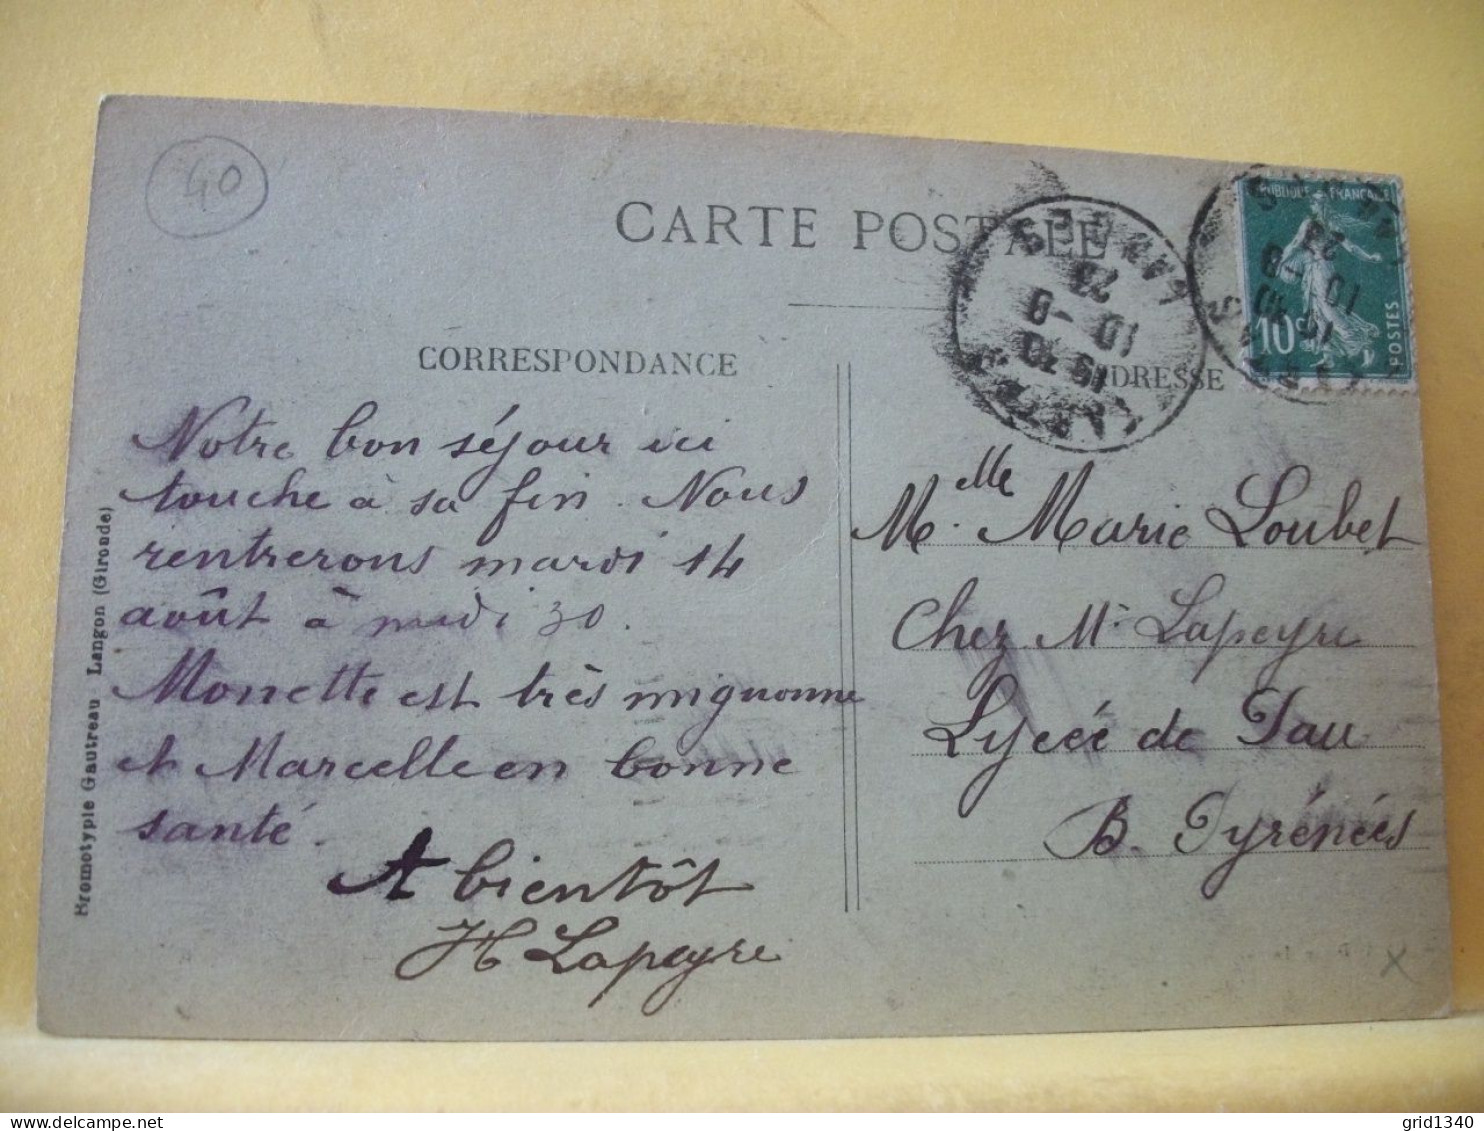 40
CARTE POSTALE
RÉPUBLIQUE FRANÇAISE
10c
POSTES
LANDES
23
10 -8
19 10
CORRESPONDANCE
ADRESSE
Notre bon séjour ici
touche à sa fin. Nous
rentrerons mardi 14
août à midi 30.
Monette est très mignonne
et Marcelle en bonne
santé.
A bientôt
H Lapeyre
Melle Marie Loubet
Chez Mr Lapeyre
Lycée de Pau
B. Pyrénées
Bromotypie Gautreau Langon (Gironde)
x
grid1340